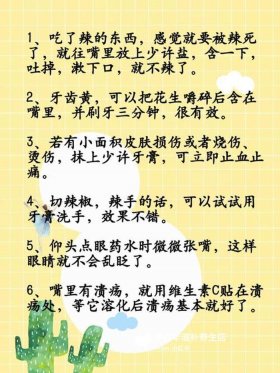 1、吃了辣的东西，感觉就要被辣死
了，就往嘴里放上少许盐，含一下，
吐掉，漱下口，就不辣了。
2、牙齿黄，可以把花生嚼碎后含在
嘴里，并刷牙三分钟，很有效。
3、若有小面积皮肤损伤或者烧伤、
烫伤，抹上少许牙膏，可立即止血止
痛。
4、切辣椒，辣手的话，可以试试用
牙膏洗手，效果不错。
5、仰头点眼药水时微微张嘴，这样
眼睛就不会乱眨了。
6、嘴里有溃疡，就用维生素C贴在溃
疡处，等它溶化后溃疡基本就好了。